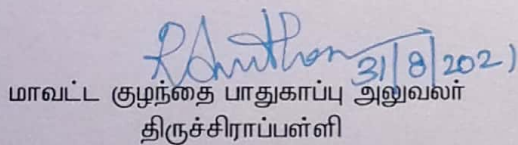 31/8/2021
மாவட்ட குழந்தை பாதுகாப்பு அலுவலர்
திருச்சிராப்பள்ளி